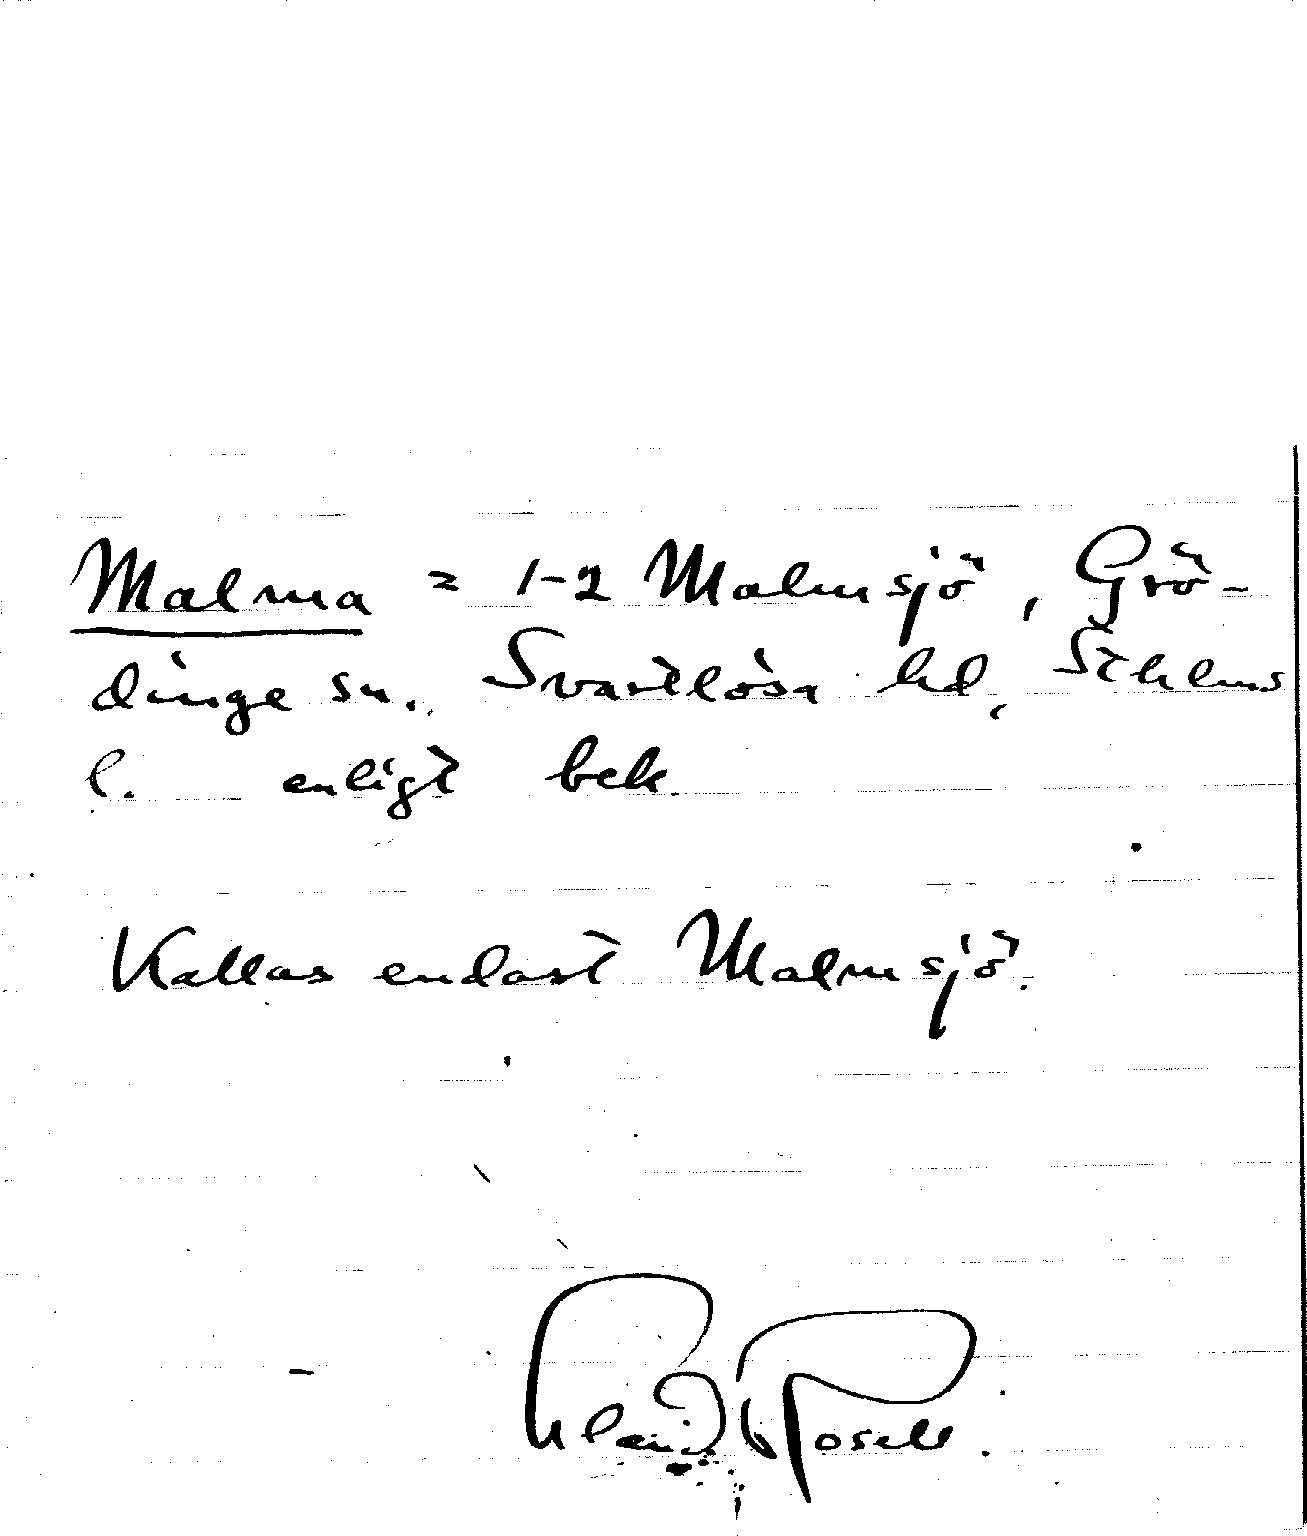 Malma = 1-2 Malmsjö, Grö-
dinge sn. Svartlösa hd, Sthlms
l. enligt bek.
Kallas endast Malmsjö.
Rosell.